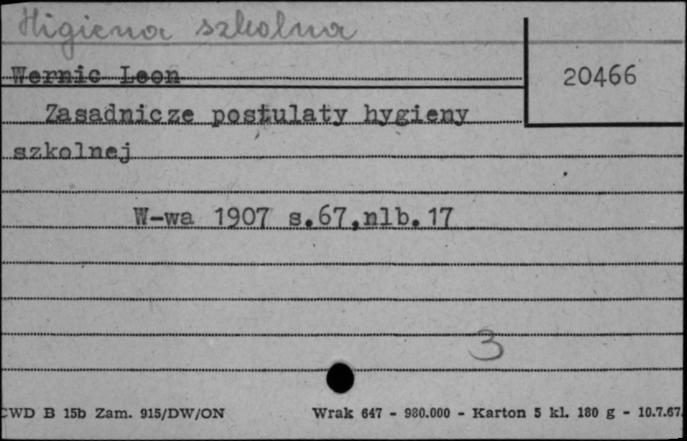 Higiena szkolna
Wernic Leon
20466
Zasadnicze postulaty hygieny
szkolnej
W-wa 1907 s.67,nlb.17
3
CWD B 15b Zam. 915/DW/ON Wrak 647 - 980.000 - Karton 5 kl. 180 g - 10.7.67